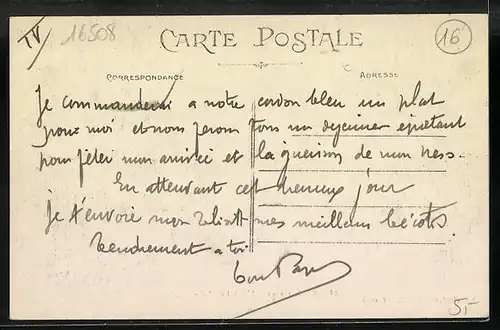 TV
16508
CARTE POSTALE
16
CORRESPONDANCE
ADRESSE
Je commanderai a notre cordon bleu un plat
pour moi et nous ferons tous un dejeuner epatant
pour fêter mon arrivée et la guérison de mon
En attendant cet heureux jour
je t'envoie mes meilleurs bécots
Tendrement a toi
5.-